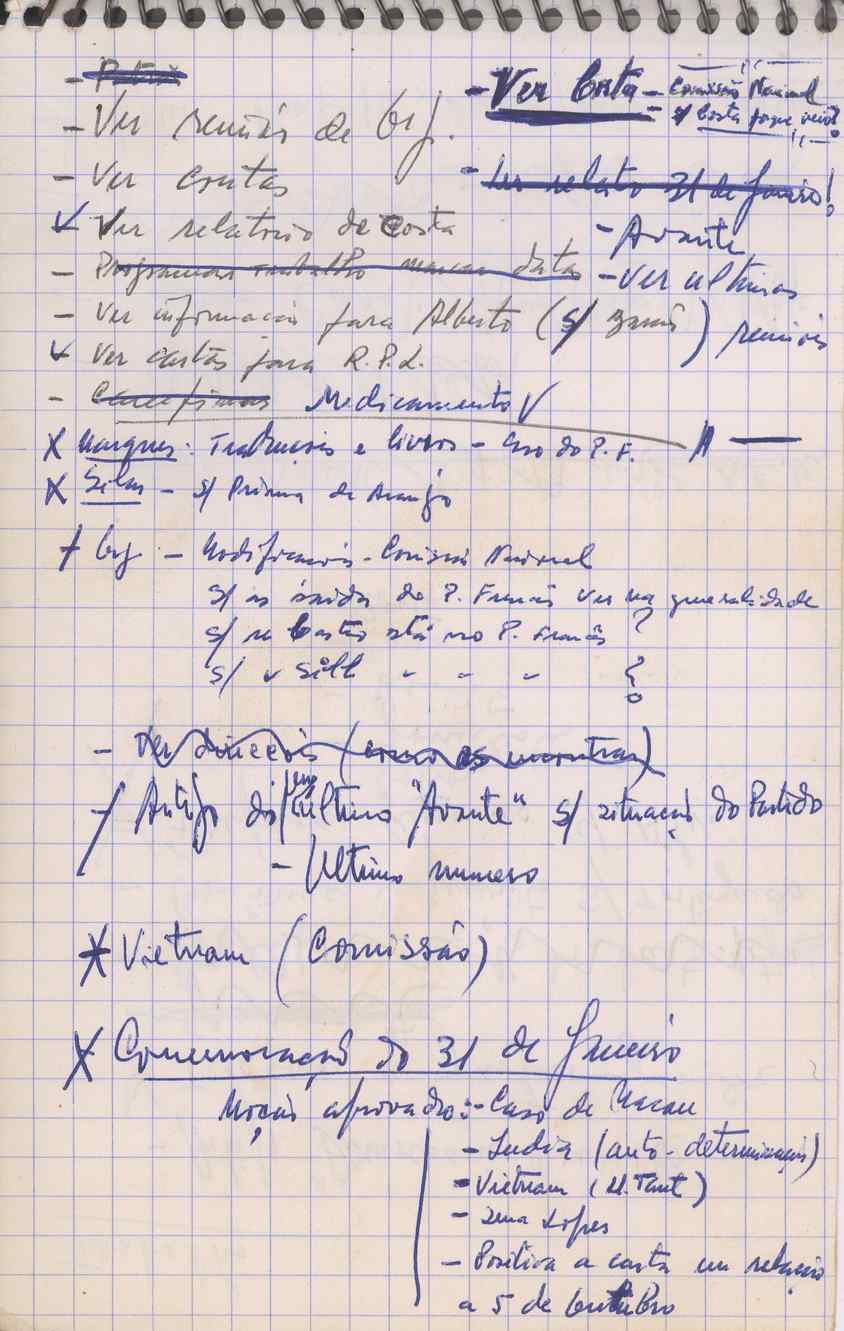 - Ver reunião de Org.
- Ver contas
✓ Ver relatorio de Costa
- Programar trabalho marcar datas
- Ver informação para Alberto (s/ )
✓ Ver cartas para R.P.L.
- Medicamento V
- Ver Costa - Comissão Nacional
- s/ Costa porque veio?
- Ler relato 31 de Janeiro!
- Avante
- Ver ultimas
reuniões
X Marques: Traduções e livros - Caso do P. F.
X Silas - s/ Prisma de Araujo
Org - Modificação - Comissão Nacional
s/ as saídas do P. Francês Ver na generalidade
s/ se estão no P. Francês ?
s/ " " " ?
- Ver direcções (como as encontras)
Artigo do ultimo "Avante" s/ situação do Partido
- Ultimo numero
X Vietnam (Comissão)
X Comemoração do 31 de Janeiro
Moção aprovado: - Caso de Macau
- India (auto-determinação)
- Vietnam (U. Tant)
- Lopes
- Positiva a carta em relação
a 5 de Outubro